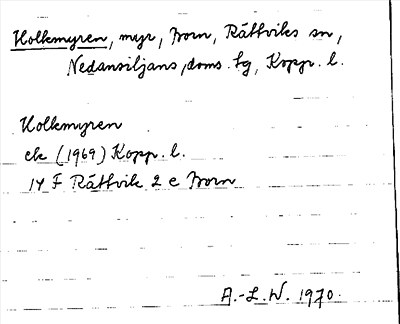 Holkmyren, myr, Born, Rättviks sn,
Nedansiljans, doms. tg, Kopp. l.
Holkmyren
ek (1969) Kopp. l.
14 F Rättvik 2 e Born
A.-L. W. 1970.